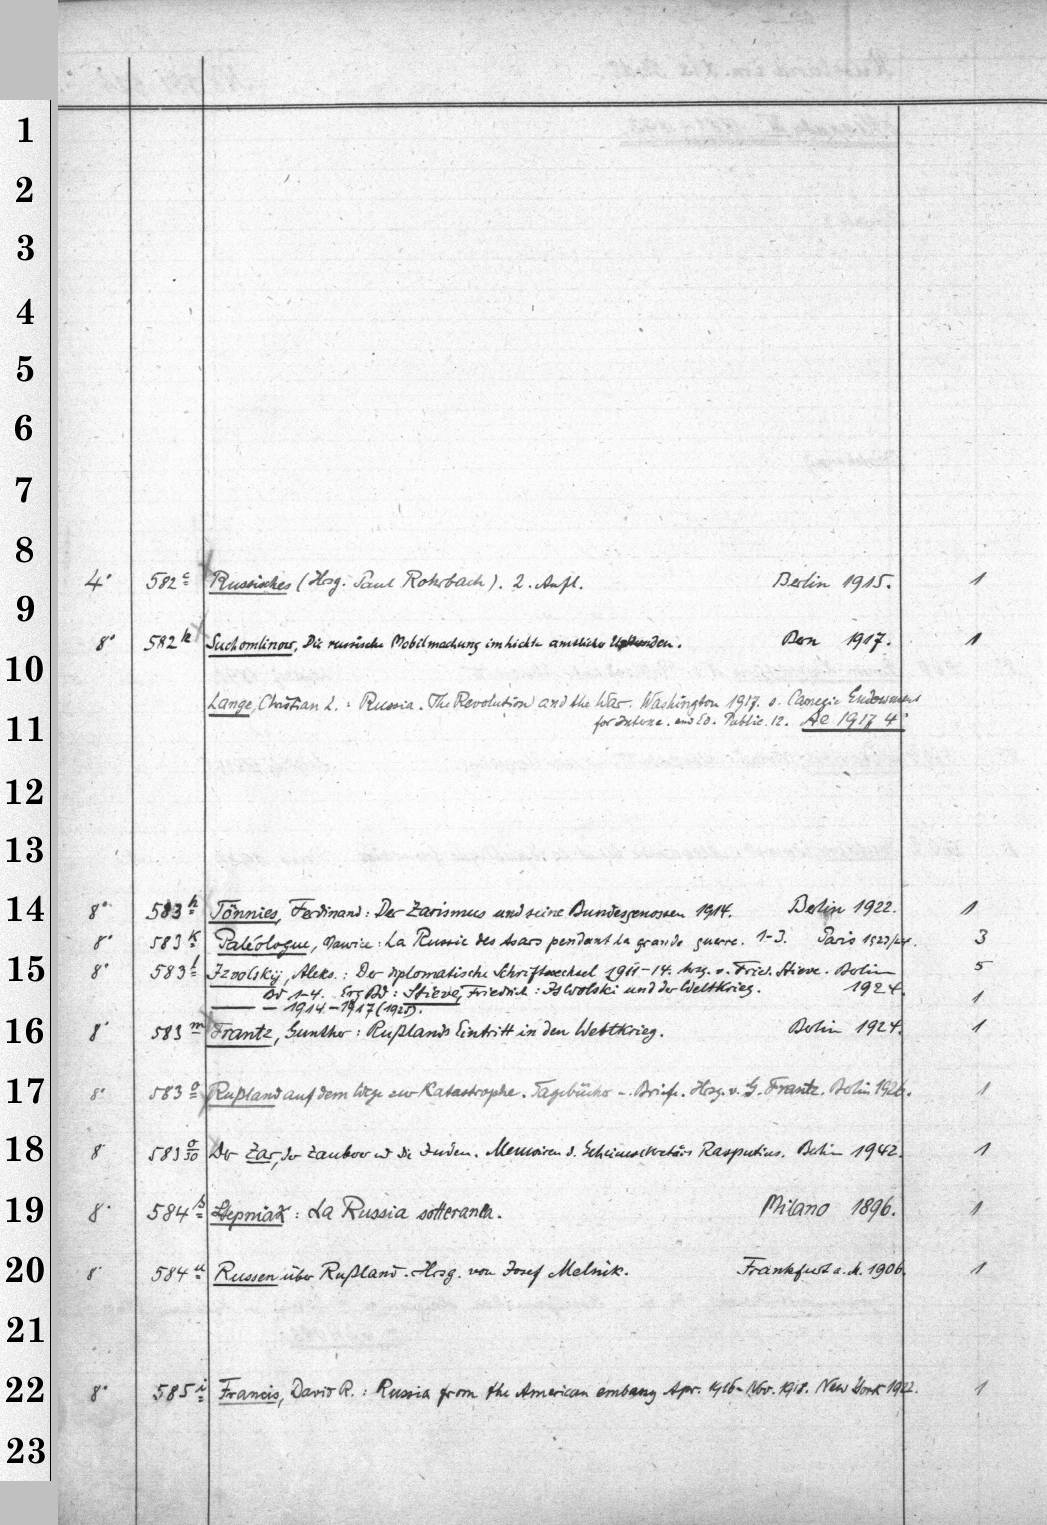 1
2
3
4
5
6
7
8
4° 582 c Russisches (Hrsg. Paul Rohrbach). 2. Aufl. Berlin 1915. 1
9
8° 582 k Suchomlinow, Die russische Mobilmachung im Lichte amtlicher Urkunden. Bern 1917. 1
10
Lange, Christian L.: Russia. The Revolution and the War. Washington 1917. s. Carnegie Endowment
for Interne. Public. 12. Ae 1917 4°
11
12
13
14 8° 583 h Tönnies, Ferdinand: Der Zarismus und seine Bundesgenossen 1914. Berlin 1922. 1
8° 583 k Paléologue, Maurice: La Russie des tsars pendant la grande guerre. 1-3. Paris 1923/24. 3
15 8° 583 l Izvolskij, Aleks.: Der diplomatische Schriftwechsel 1911-14. hrsg. v. Fried. Stieve. Berlin 5
Bd 1-4. Erg Bd: Stieve, Friedrich: Iswolski und der Weltkrieg. 1924. 1
— — 1914-1917 (1925).
16 8° 583 m Frantz, Gunther: Rußlands Eintritt in den Weltkrieg. Berlin 1924. 1
17 8° 583 o Rußland auf dem Wege zur Katastrophe. Tagebücher - Briefe. Hrsg. v. G. Frantz. Berlin 1926. 1
18 8° 583 o/30 Der Zar, der Zauberer u d die Juden. Memoiren d. Geheimsekretärs Rasputins. Berlin 1942. 1
19 8° 584 b Stepniak: La Russia sotteranea. Milano 1896. 1
20 8° 584 u Russen über Rußland. Hrsg. von Josef Melnik. Frankfurt a. M. 1906. 1
21
22 8° 585 i Francis, David R.: Russia from the American embassy Apr. 1916-Nov. 1918. New York 1922. 1
23